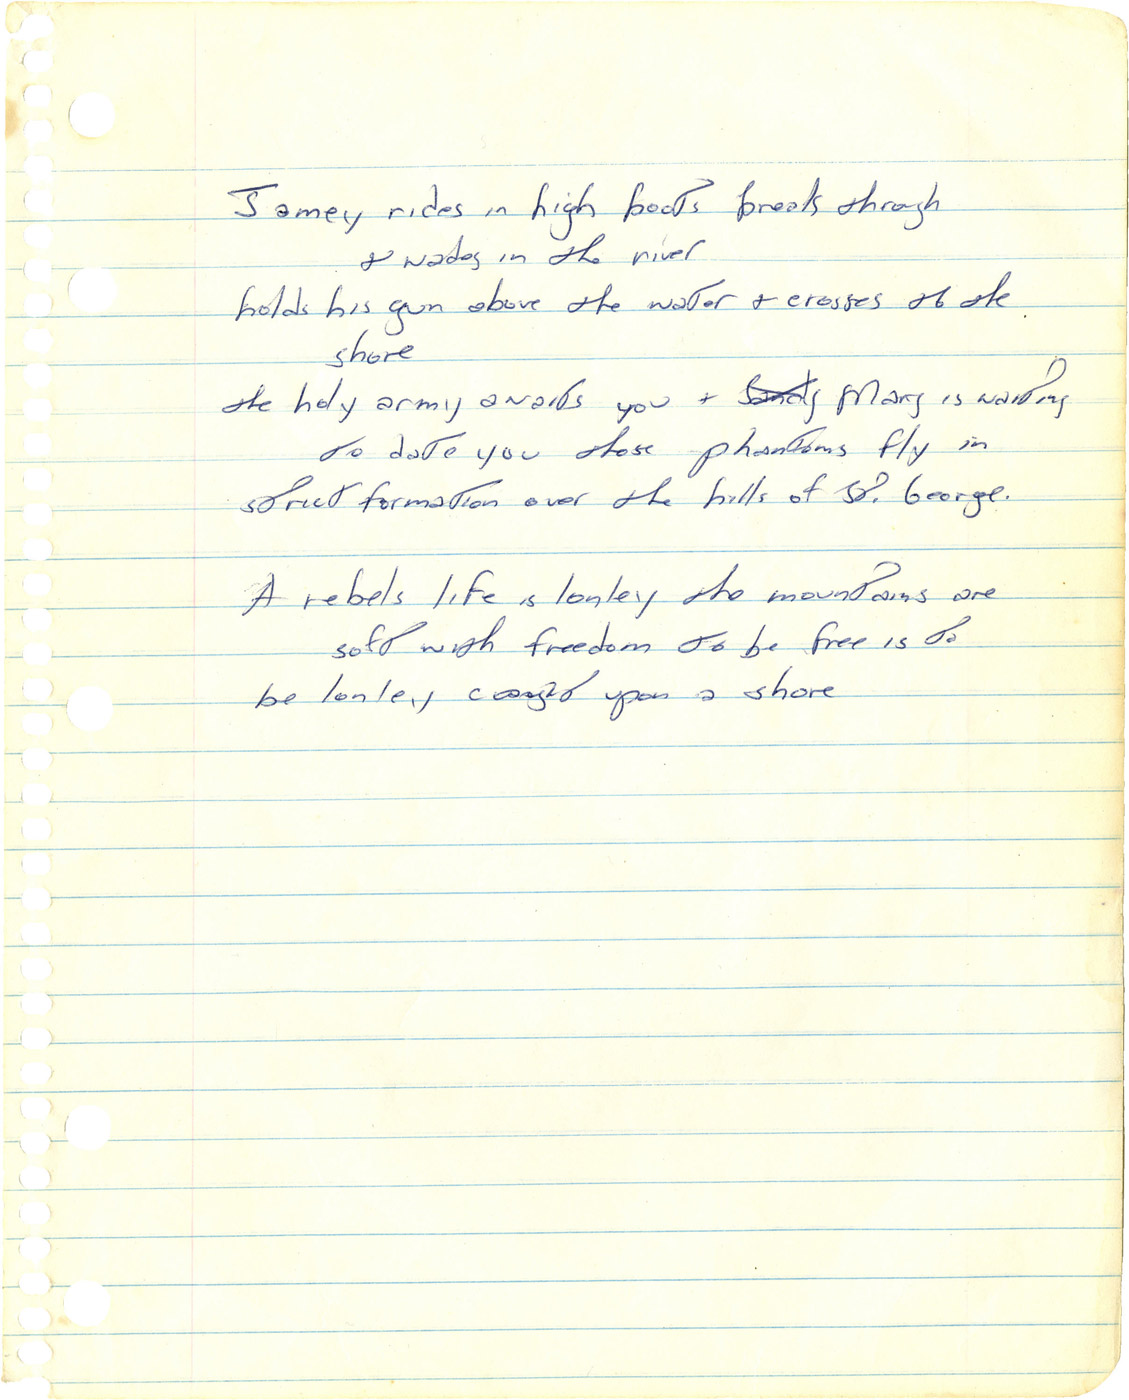 Jamey rides in high boots breaks through
& wades in the river
holds his gun above the water & crosses to the
shore
the holy army awaits you + Sandy Mary is waiting
to date you those phantoms fly in
strict formation over the hills of St. George.
A rebels life is lonley the mountains are
soft with freedom to be free is to
be lonley caught upon a shore